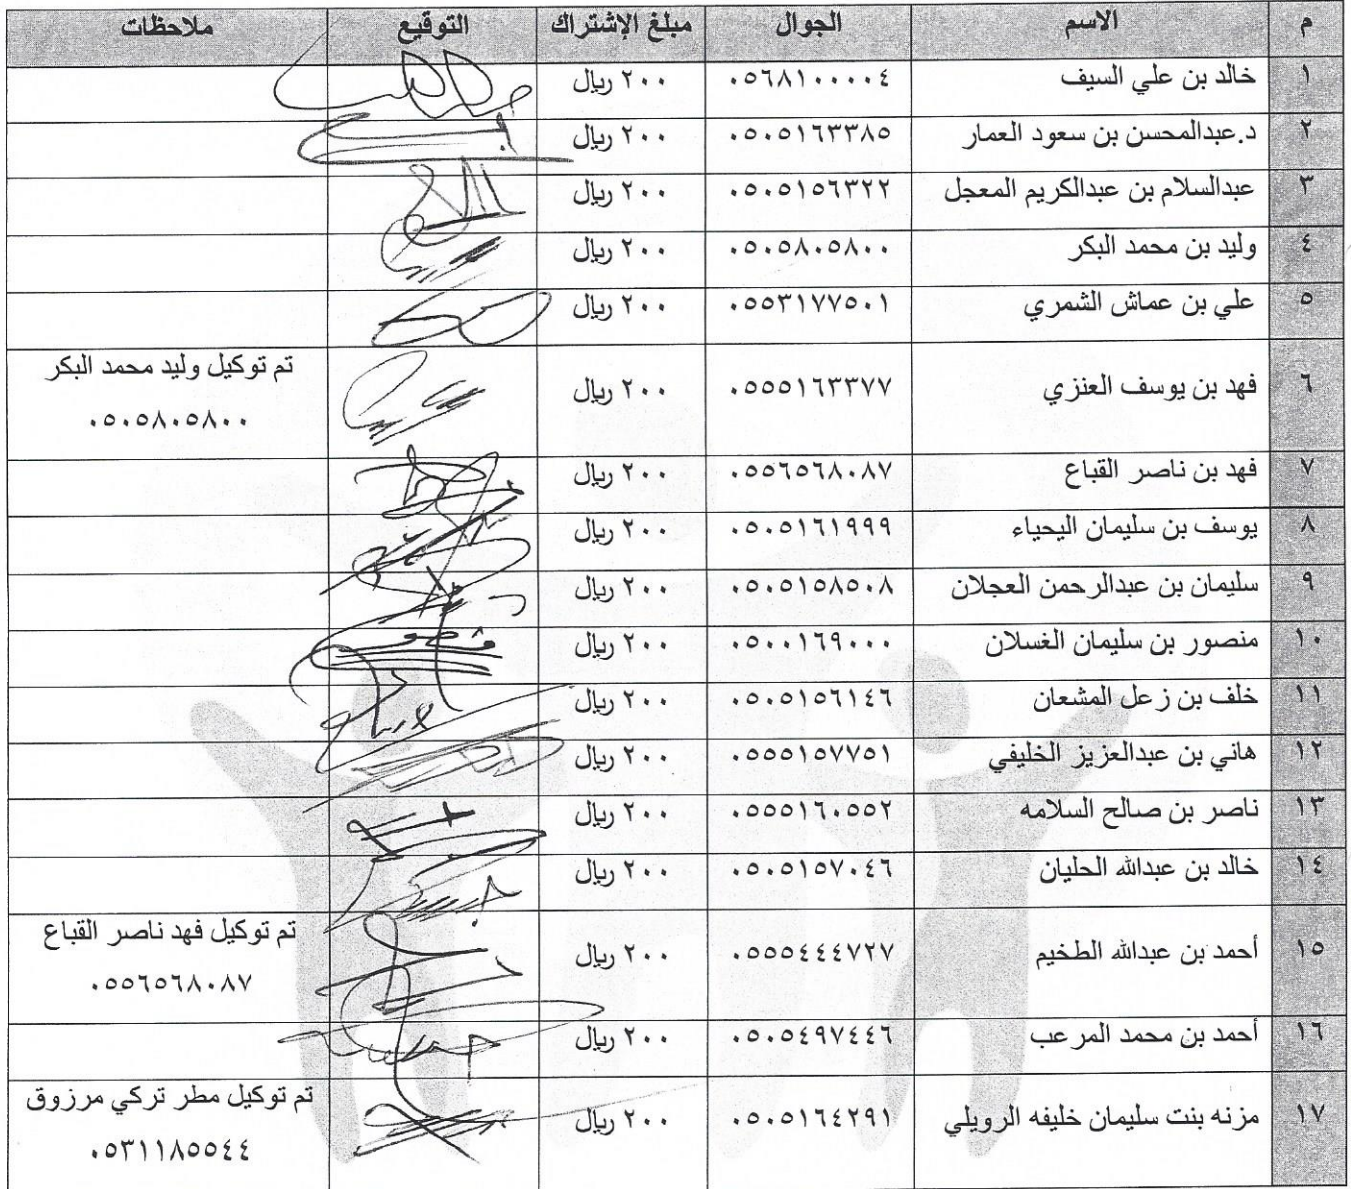 م الاسم الجوال مبلغ الإشتراك التوقيع ملاحظات
١ خالد بن علي السيف ٠٥٦٨١٠٠٠٠٤ ٢٠٠ ريال
٢ د.عبدالمحسن بن سعود العمار ٠٥٠٥١٦٣٣٨٥ ٢٠٠ ريال
٣ عبدالسلام بن عبدالكريم المعجل ٠٥٠٥١٥٦٣٢٢ ٢٠٠ ريال
٤ وليد بن محمد البكر ٠٥٠٥٨٠٥٨٠٠ ٢٠٠ ريال
٥ علي بن عماش الشمري ٠٥٥٣١٧٧٥٠١ ٢٠٠ ريال
٦ فهد بن يوسف العنزي ٠٥٥٥١٦٣٣٧٧ ٢٠٠ ريال تم توكيل وليد محمد البكر
٠٥٠٥٨٠٥٨٠٠
٧ فهد بن ناصر القباع ٠٥٥٦٥٦٨٠٨٧ ٢٠٠ ريال
٨ يوسف بن سليمان اليحياء ٠٥٠٥١٦١٩٩٩ ٢٠٠ ريال
٩ سليمان بن عبدالرحمن العجلان ٠٥٠٥١٥٨٥٠٨ ٢٠٠ ريال
١٠ منصور بن سليمان الغسلان ٠٥٠٠١٦٩٠٠٠ ٢٠٠ ريال
١١ خلف بن زعل المشعان ٠٥٠٥١٥٦١٤٦ ٢٠٠ ريال
١٢ هاني بن عبدالعزيز الخليفي ٠٥٥٥١٥٧٧٥١ ٢٠٠ ريال
١٣ ناصر بن صالح السلامه ٠٥٥٥١٦٠٥٥٢ ٢٠٠ ريال
١٤ خالد بن عبدالله الحليان ٠٥٠٥١٥٧٠٤٦ ٢٠٠ ريال
١٥ أحمد بن عبدالله الطخيم ٠٥٥٥٤٤٤٧٢٧ ٢٠٠ ريال تم توكيل فهد ناصر القباع
٠٥٥٦٥٦٨٠٨٧
١٦ أحمد بن محمد المرعب ٠٥٠٥٤٩٧٤٤٦ ٢٠٠ ريال
١٧ مزنه بنت سليمان خليفه الرويلي ٠٥٠٥١٦٤٢٩١ ٢٠٠ ريال تم توكيل مطر تركي مرزوق
٠٥٣١١٨٥٥٤٤